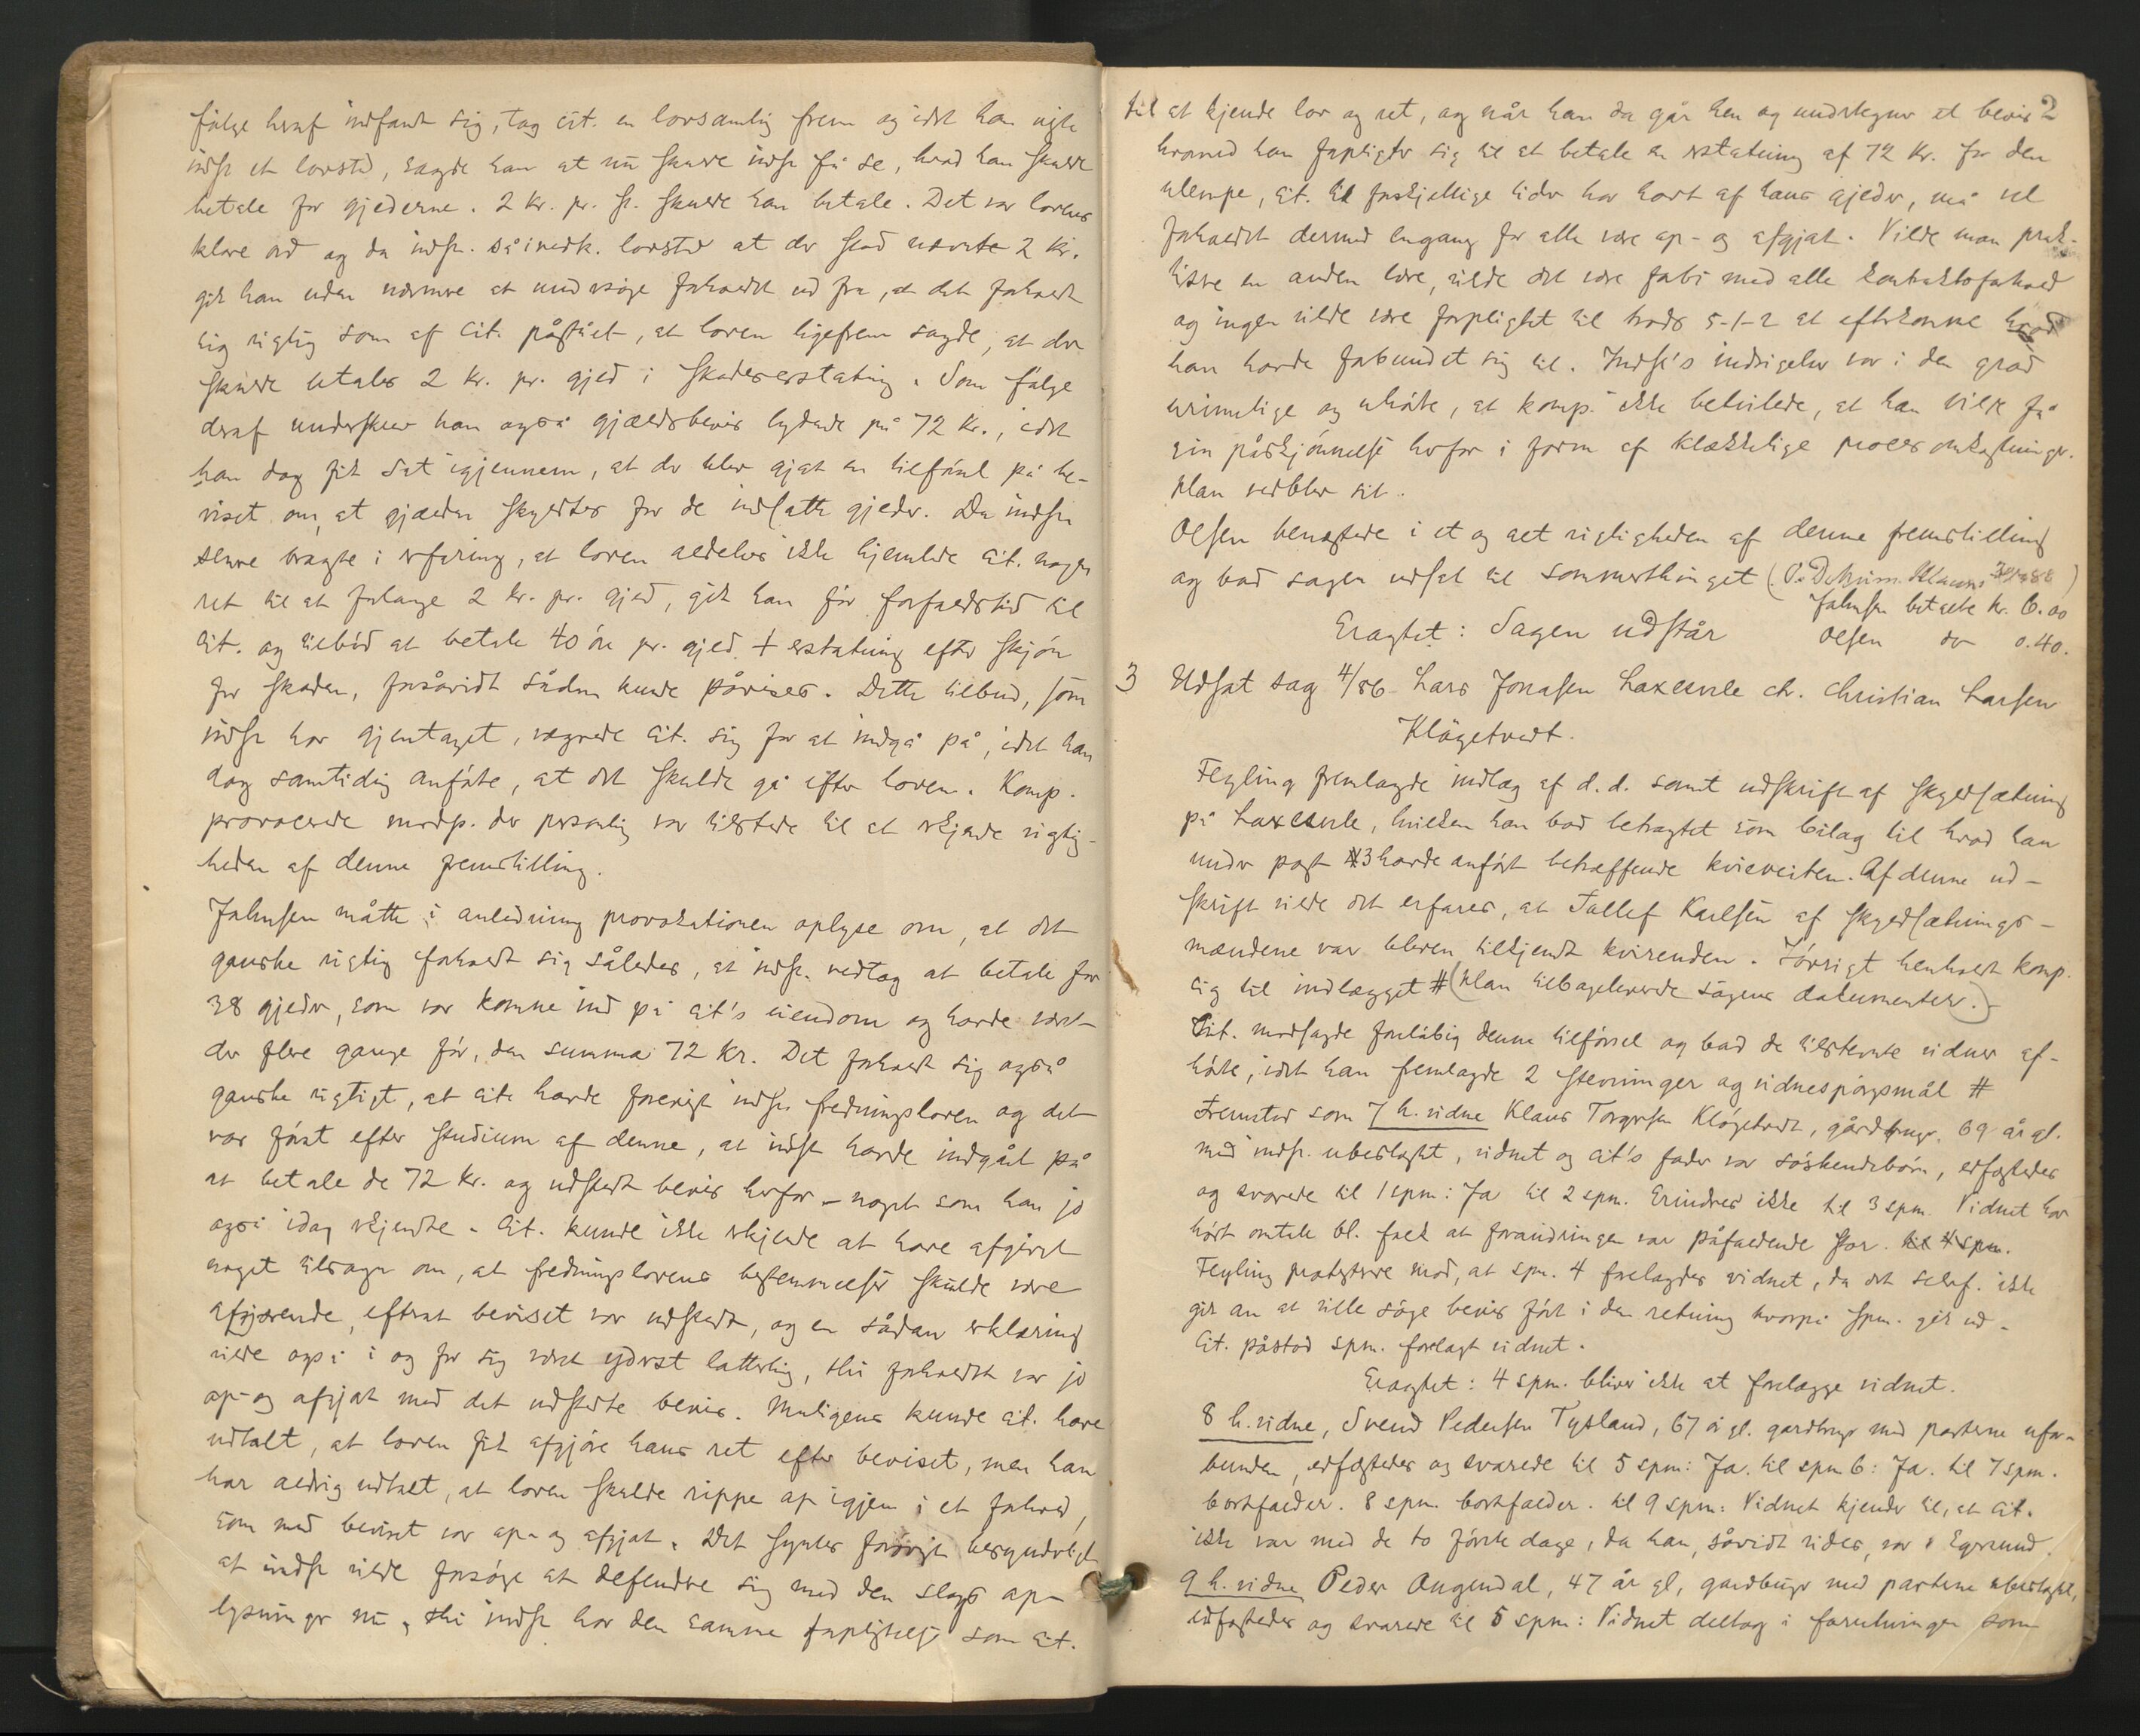 følge heraf indfandt sig, tog cit. en lovsamling frem og idet han viste
indst. et lovsted, sagde han at nu skulde indst. få se, hvad han skulde
betale for gjederne. 2 kr. pr. st. skulde han betale. Det var lovens
klare ord og da indst. så i vedk. lovsted at der stod nævnte 2 kr.
gik han uden nærmere at undersøge forholdet ud fra, at det forholdt
sig rigtig som af cit. påstået, at loven ligefrem sagde, at der
skulde betales 2 kr. pr. gjed i skadeserstatning. Som følge
deraf underskrev han også gjældsbevis lydende på 72 kr., idet
han dog fik sat igjennem, at der blev gjort en tilførsel på be-
viset om, at gjælden skyldtes for de indsatte gjeder. Da indst.
senere bragte i erfaring, at loven aldeles ikke hjemlede cit. nogen
ret til at forlange 2 kr. pr. gjed, gik han før forfaldstid til
cit. og tilbød at betale 40 øre pr. gjed + erstatning efter skjøn
for skaden, forsåvidt sådan kunde påvises. Dette tilbud, som
indst. har gjentaget, vægrede cit. sig for at indgå på, idet han
dog samtidig anførte, at det skulde gå efter loven. Komp.
provocerede modp. der personlig var tilstede til at erkjende rigtig-
heden af denne fremstilling.
Johnsen måtte i anledning provokationen oplyse om, at det
ganske rigtig forholdt sig således, at indst. vedtog at betale for
38 gjeder, som var komne ind på cit's eiendom og havde været
der flere gange før, den summa 72 kr. Det forholdt sig også
ganske rigtigt, at cit. havde forevist indst. fredningsloven og det
var først efter studium af denne, at indst. havde indgået på
at betale de 72 kr. og udstedt bevis herfor – noget som han jo
også idag erkjendte. Cit. kunde ikke erkjende at have afgivet
noget tilsagn om, at fredningslovens bestemmelser skulde være
afgjørende, efterat beviset var udstedt, og en sådan erklæring
vilde også i og for sig været yderst latterlig, thi forholdet var jo
op- og afgjort med det udstedte bevis. Muligens kunde cit. have
udtalt, at loven fik afgjøre hans ret efter beviset, men han
har aldrig udtalt, at loven skulde rippe op igjen i et forhold,
som med beviset var op- og afgjort. Det synes forøvrigt besynderligt
at indst. vilde forsøge at defendere sig med den slags op-
lysninger nu, thi indst. har den samme forpligtelse som cit.
2
til at kjende lov og ret, og når han da går hen og undertegner et bevis
hvorved han forpligter sig til at betale en erstatning af 72 kr. for den
ulempe, cit. til forskjellige tider har havt af hans gjeder, må vel
forholdet dermed engang for alle være op- og afgjort. Vilde man prak-
tisere en anden lære, vilde det være forbi med alle kontraktsforhold
og ingen vilde være forpligtet til trods 5-1-2 at efterkomme hvad
han havde forbundet sig til. Indst's indsigelser var i den grad
urimelige og uhørte, at komp. ikke betvilede, at han vilde få
sin påskjønnelse herfor i form af klækkelige procesomkostninger.
Han vedblev sit.
Olsen benægtede i et og alt rigtigheden af denne fremstilling
og bad sagen udsat til sommerthinget
Johnsen betalte kr. 6.00
Eragtet: Sagen udstår
Olsen do 0.40.
3 Udsat sag 4/86 Lars Jonasen Laxesvele ctr. Christian Larsen
Kløgetvedt.
Feyling fremlagde indlæg af d.d. samt udskrift af skyldsætning
på Laxesvele, hvilken han bad betragtet som bilag til hvad han
under post 3 havde anført betræffende kvieveiten. Af denne ud-
skrift vilde det erfares, at Tallef Karlsen af skyldsætnings-
mændene var bleven tilkjendt kvirenden. Iøvrigt henholdt komp.
sig til indlægget # (Han tilbageleverede sagens dokumenter.)
Cit. modsagde foreløbig denne tilførsel og bad de tilstevnte vidner af-
hørte, idet han fremlagde 2 stevninger og vidnespørgsmål #
Fremstod som 7 h. vidne Klaus Torgersen Kløgetvedt, gårdbruger, 69 år gl.
med indst. ubeslægtet, vidnet og cit's fader var søskendebørn, edfæstedes
og svarede til 1 spm: Ja til 2 spm. Erindres ikke til 3 spm. Vidnet har
hørt omtale bl. folk at forandringen var påfaldende stor. til 4 spm.
Feyling protesterede mod, at spm. 4 forelagdes vidnet, da det selvf. ikke
gik an at ville søge bevis ført i den retning hvorpå spm. gik ud.
Cit. påstod spm. forelagt vidnet.
Eragtet: 4 spm. bliver ikke at forelægge vidnet.
8 h. vidne, Svend Pedersen Tysland, 67 år gl. gårdbruger med parterne ufor-
bunden, edfæstedes og svarede til 5 spm: Ja. til spm 6: Ja. til 7 spm.
bortfalder. 8 spm. bortfalder. til 9 spm: Vidnet kjender til, at cit.
ikke var med de to første dage, da han, såvidt vides, var i Egersund.
9 h. vidne Peder Augendal, 47 år gl, gårdbruger med parterne ubeslægtet,
edfæstedes og svarede til 5 spm: Vidnet deltog i forretningen som